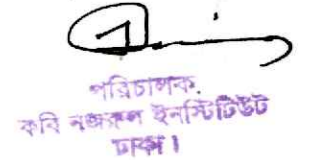 পরিচালক
কবি নজরুল ইনস্টিটিউট
ঢাকা।